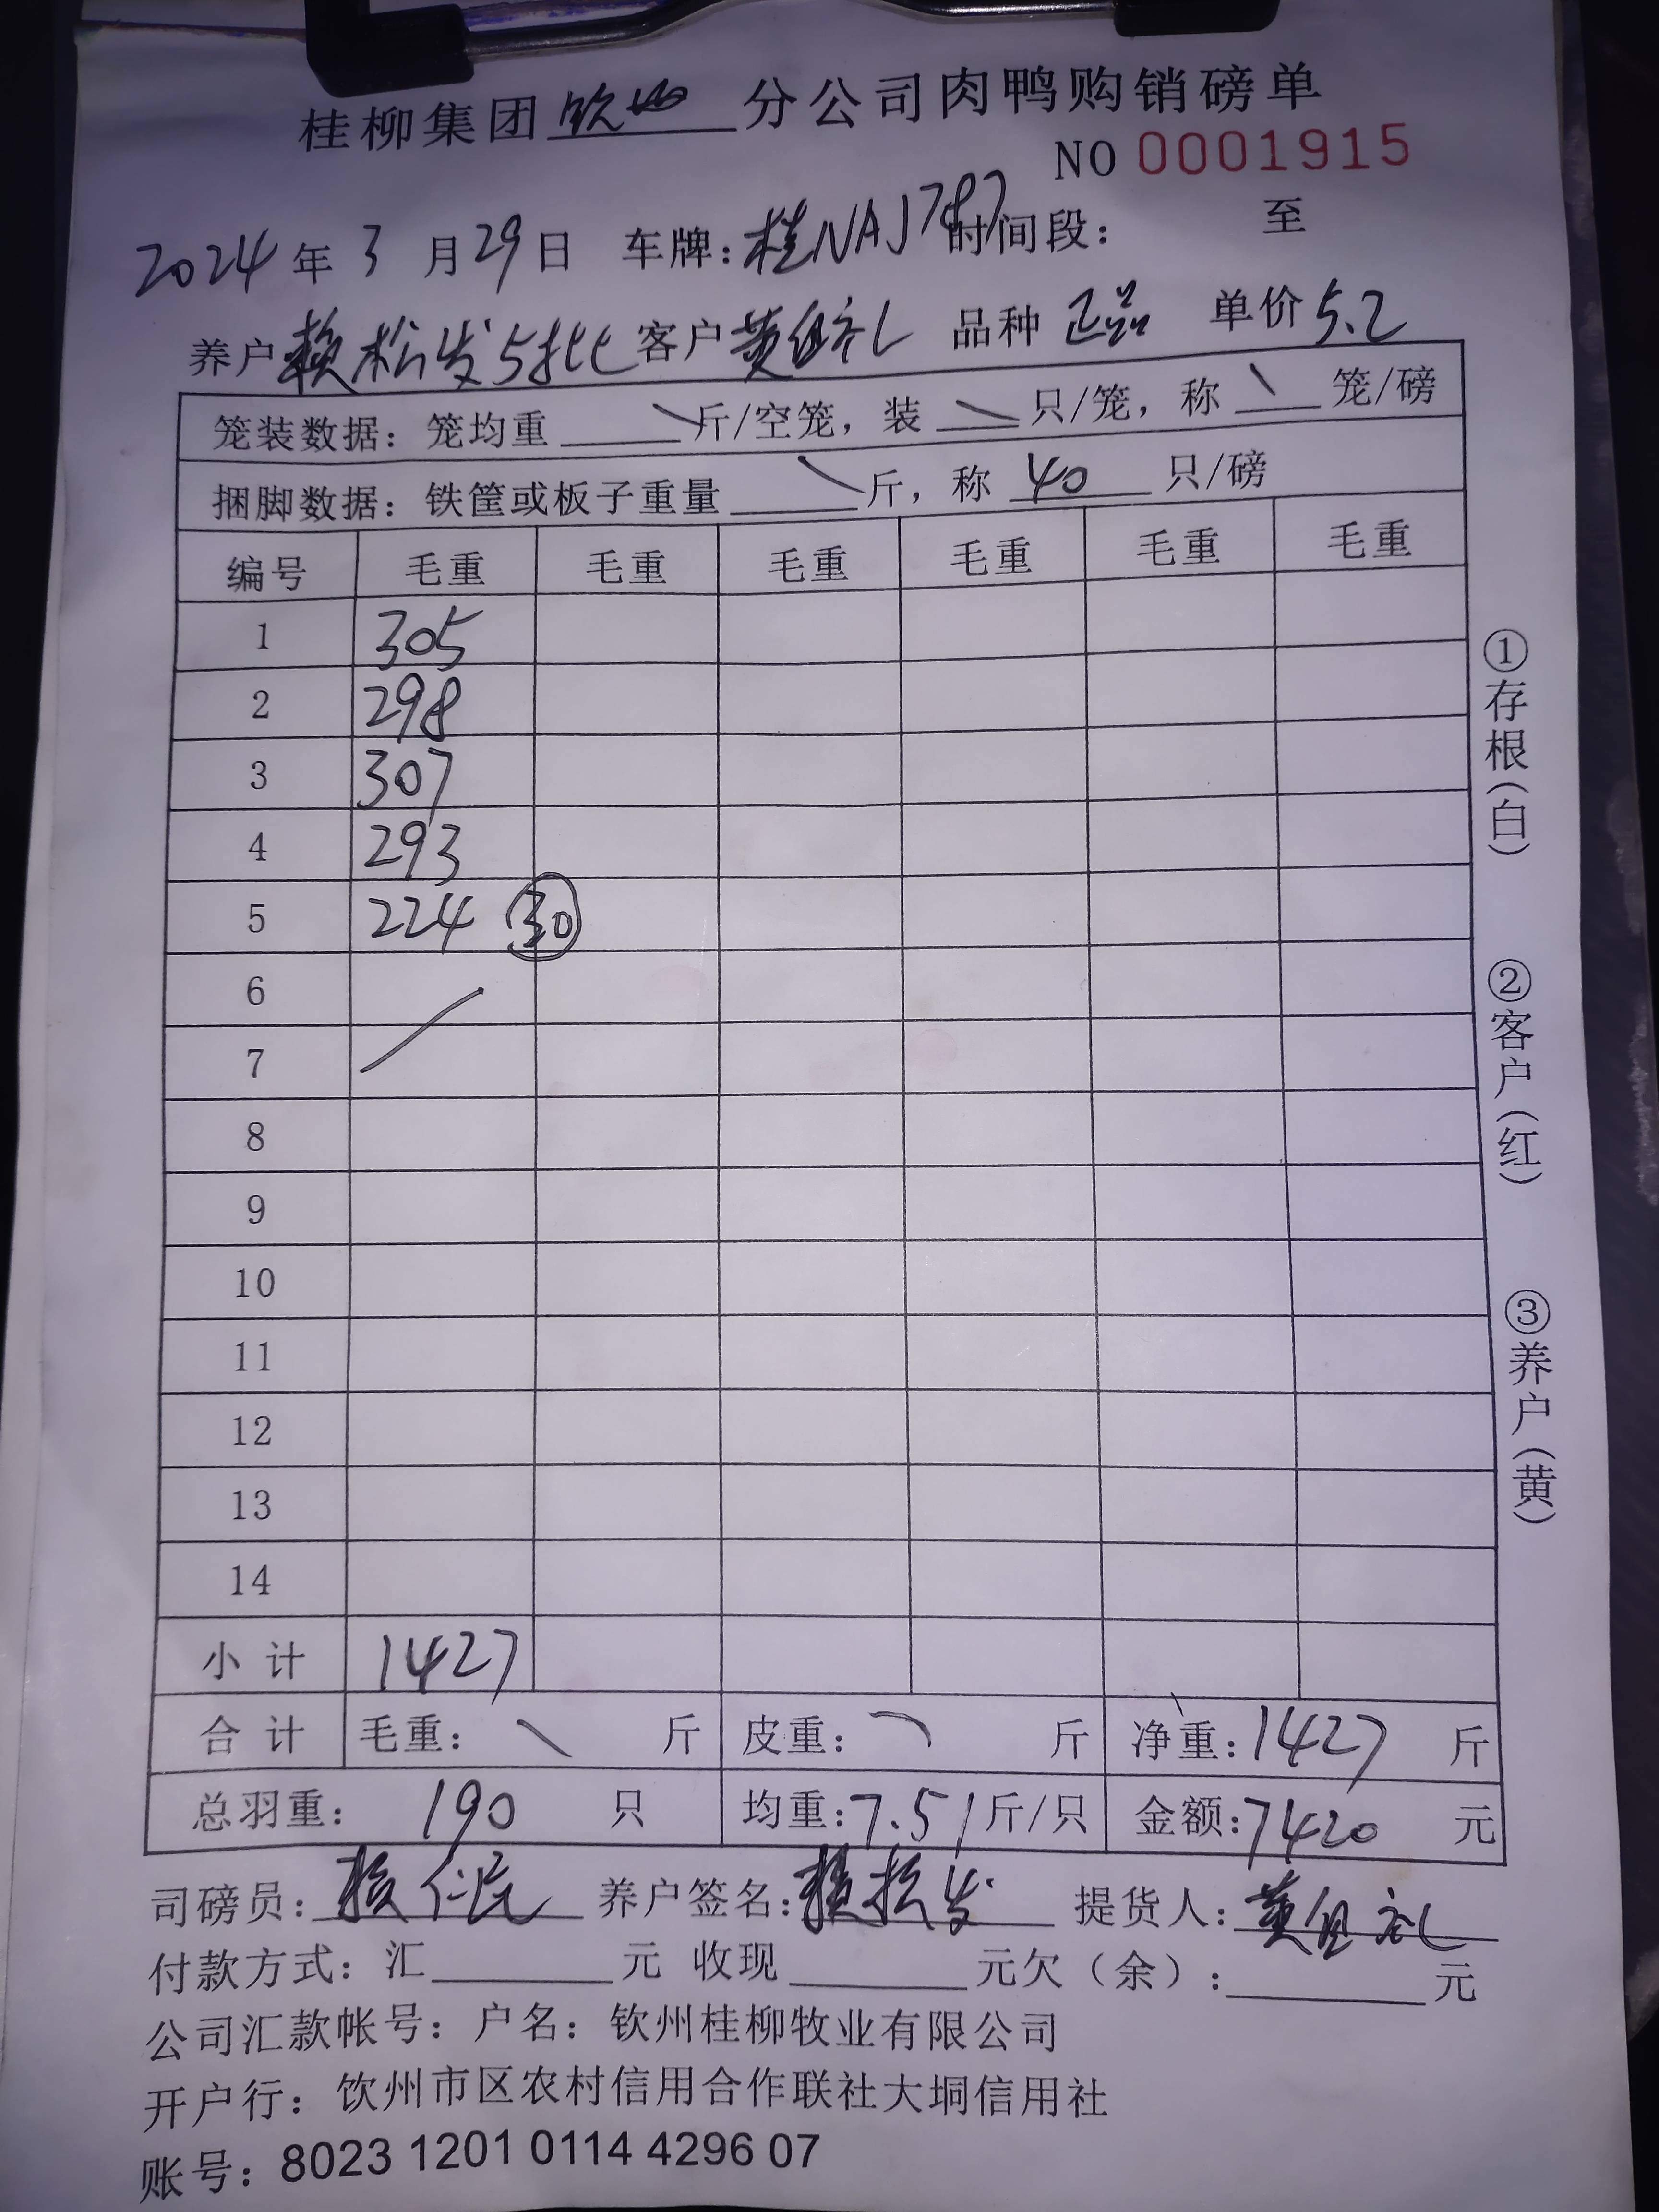 桂柳集团钦州分公司肉鸭购销磅单
NO 0001915
2024年3月29日 车牌:桂NAJ797 时间段: 至
养户赖松发5批 客户黄组礼 品种 正品 单价5.2
笼装数据:笼均重 斤/空笼,装 只/笼,称 笼/磅
捆脚数据:铁筐或板子重量 斤,称 40 只/磅
编号 毛重 毛重 毛重 毛重 毛重 毛重
1 305
2 298
3 307
4 293
5 224 30
6
7
8
9
10
11
12
13
14
小计 1427
合计 毛重: 斤 皮重: 斤 净重:1427 斤
总羽重: 190 只 均重:7.51斤/只 金额:7420 元
司磅员: 赖 养户签名:赖松发 提货人:黄组礼
付款方式:汇 元 收现 元欠(余): 元
公司汇款帐号:户名:钦州桂柳牧业有限公司
开户行:钦州市区农村信用合作联社大垌信用社
账号:8023 1201 0114 4296 07
①存根(白)
②客户(红)
③养户(黄)